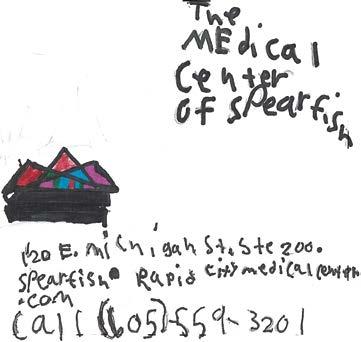 The
MEdical
Center
Of spearfish
120 E. michigan St. Ste 200.
spearfish Rapid citymedicalcenter
.com
Call (605)-559-3201